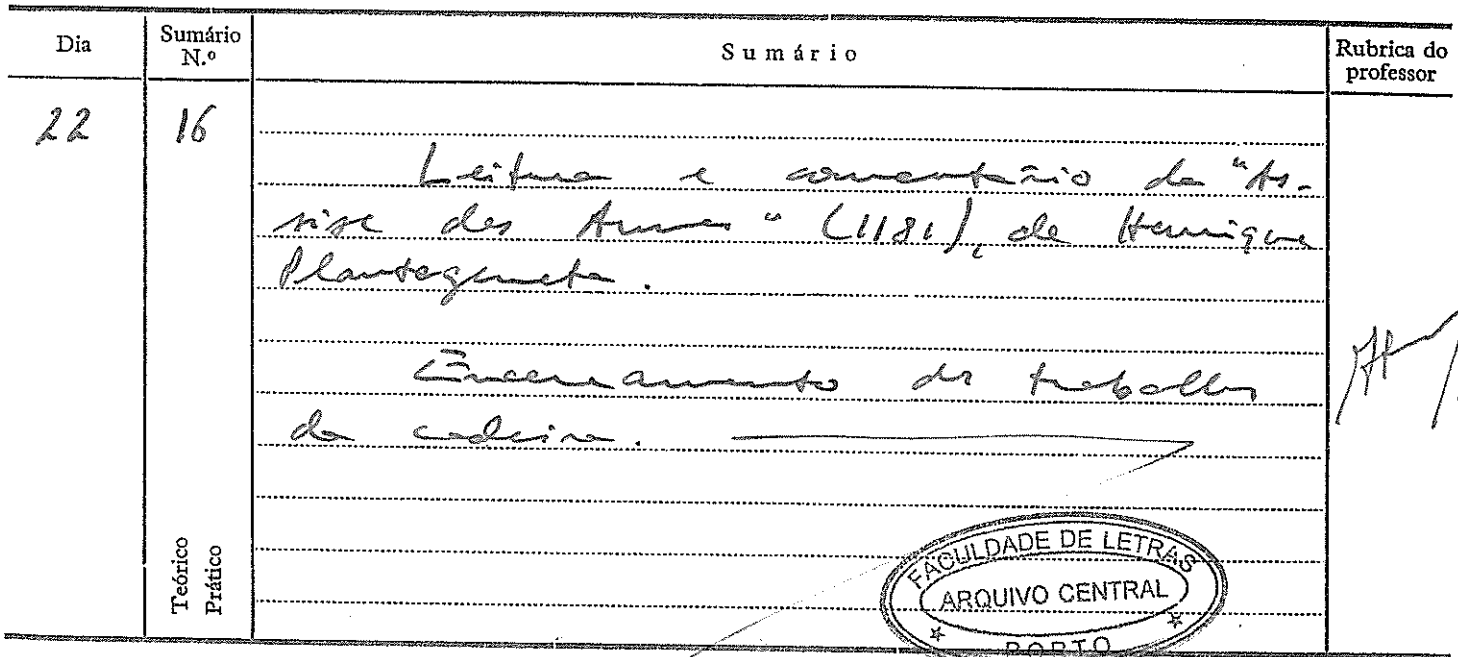 Dia
Sumário N.º
Sumário
Rubrica do professor
22
16
Leitura e comentário da "As-
sise des Armes" (1181), de Henrique
Plantageneta.
Encerramento dos trabalhos
da cadeira.
Teórico
Prático
FACULDADE DE LETRAS
ARQUIVO CENTRAL
PORTO